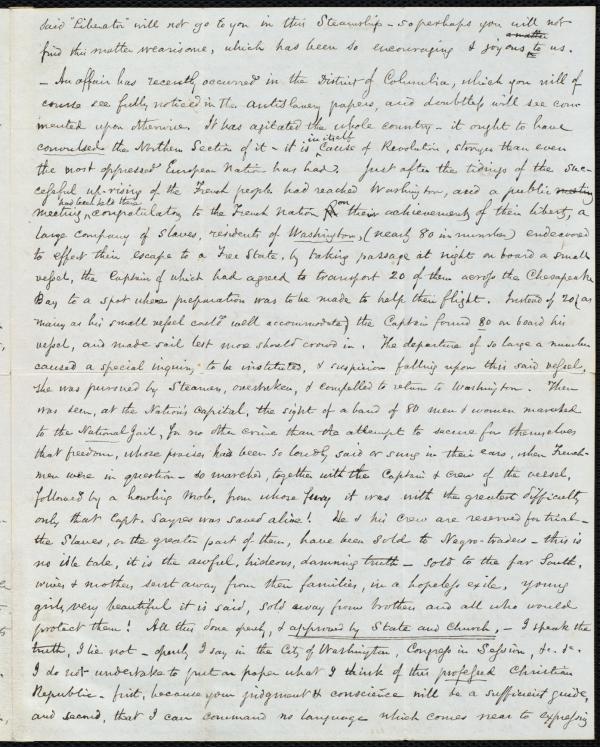 said "Liberator" will not go to you in this Steamship - so perhaps you will not
find this matter wearisome, which has been so encouraging & joyous to us.
- An affair has recently occurred in the District of Columbia, which you will of
course see fully noticed in the antislavery papers, and doubtless will see com
mented upon otherwise. It has agitated the whole country - it ought to have
convulsed the Northern Section of it - it is in itself Cause of Revolution, stronger than even
the most oppressed European Nation has had. Just after the tidings of the suc-
cessful up-rising of the French people had reached Washington, and a public meeting
meeting had been held there congratulatory to the French Nation on their achievement of their liberty, a
large company of Slaves, residents of Washington, (nearly 80 in number) endeavored
to effect their escape to a Free State, by taking passage at night on board a small
vessel, the Captain of which had agreed to transport 20 of them across the Chesapeake
Bay to a spot where preparation was to be made to help their flight. Instead of 20 (as
many as his small vessel could well accommodate) the Captain found 80 on board his
vessel, and made sail lest more should crowd in. The departure of so large a number
caused a special inquiry to be instituted, & suspicion falling upon this said vessel,
she was pursued by Steamer, overtaken, & compelled to return to Washington. Then
was seen, at the Nation's Capital, the sight of a band of 80 men & women marched
to the National Jail, for no other crime than the attempt to secure for themselves
that freedom, whose praises had been so loudly said or sung in their ears, when French-
men were in question - so marched, together with the Captain & crew of the vessel,
followed by a howling mob, from whose fury it was with the greatest difficulty
only that Capt. Sayres was saved alive! He & his crew are reserved for trial -
the Slaves, or the greater part of them, have been sold to Negro-traders - this is
no idle tale, it is the awful, hideous, damning truth - sold to the far South,
wives & mothers sent away from their families, in a hopeless exile, young
girls, very beautiful it is said, sold away from brothers and all who would
protect them! All this done openly, & approved by State and Church, - I speak the
truth, I lie not - openly I say in the City of Washington, Congress in Session, &c. &c.
I do not undertake to put on paper what I think of this professed Christian
Republic - first, because your judgment & conscience will be a sufficient guide,
and second, that I can command no language which comes near to expressing